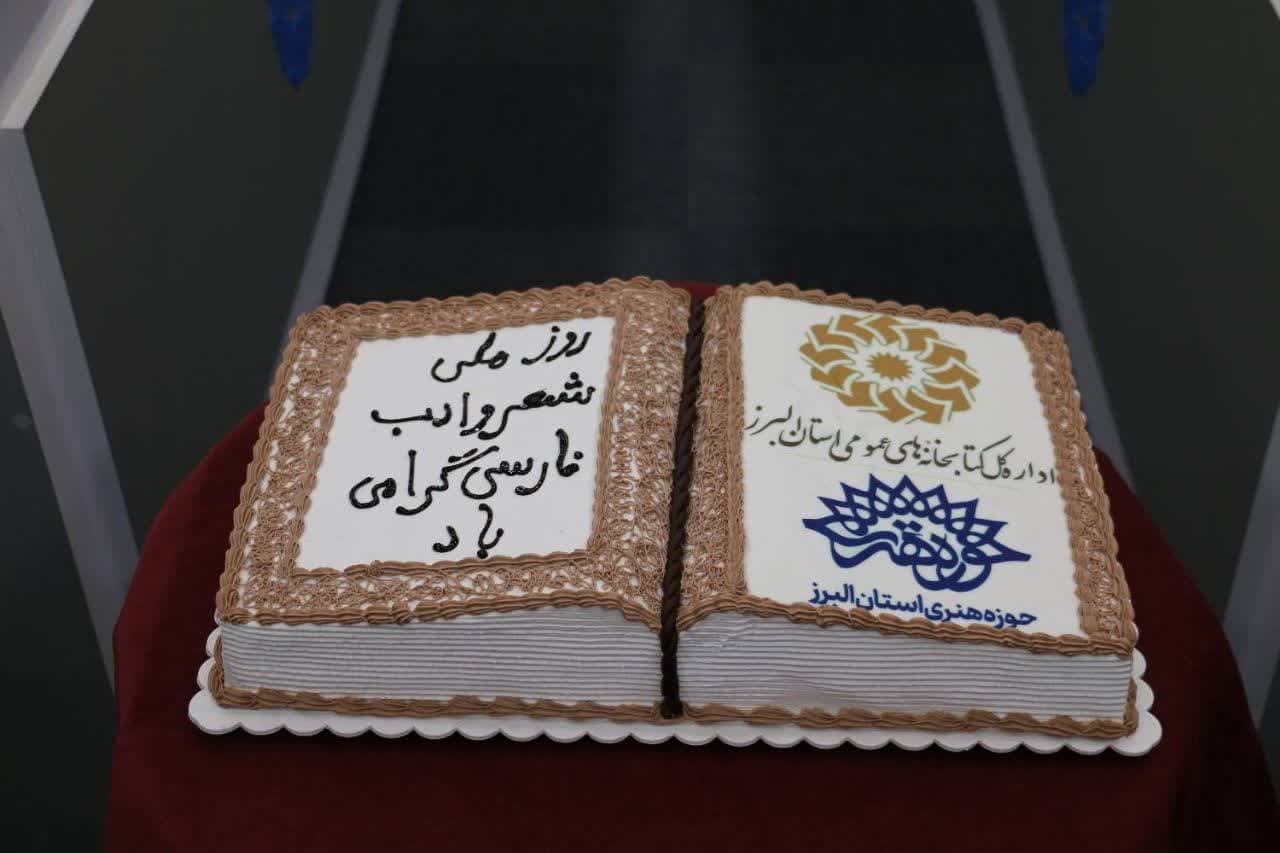 روز ملی
شعر و ادب
فارسی گرامی
باد
اداره کل کتابخانه های عمومی استان البرز
حوزه هنری
حوزه هنری استان البرز